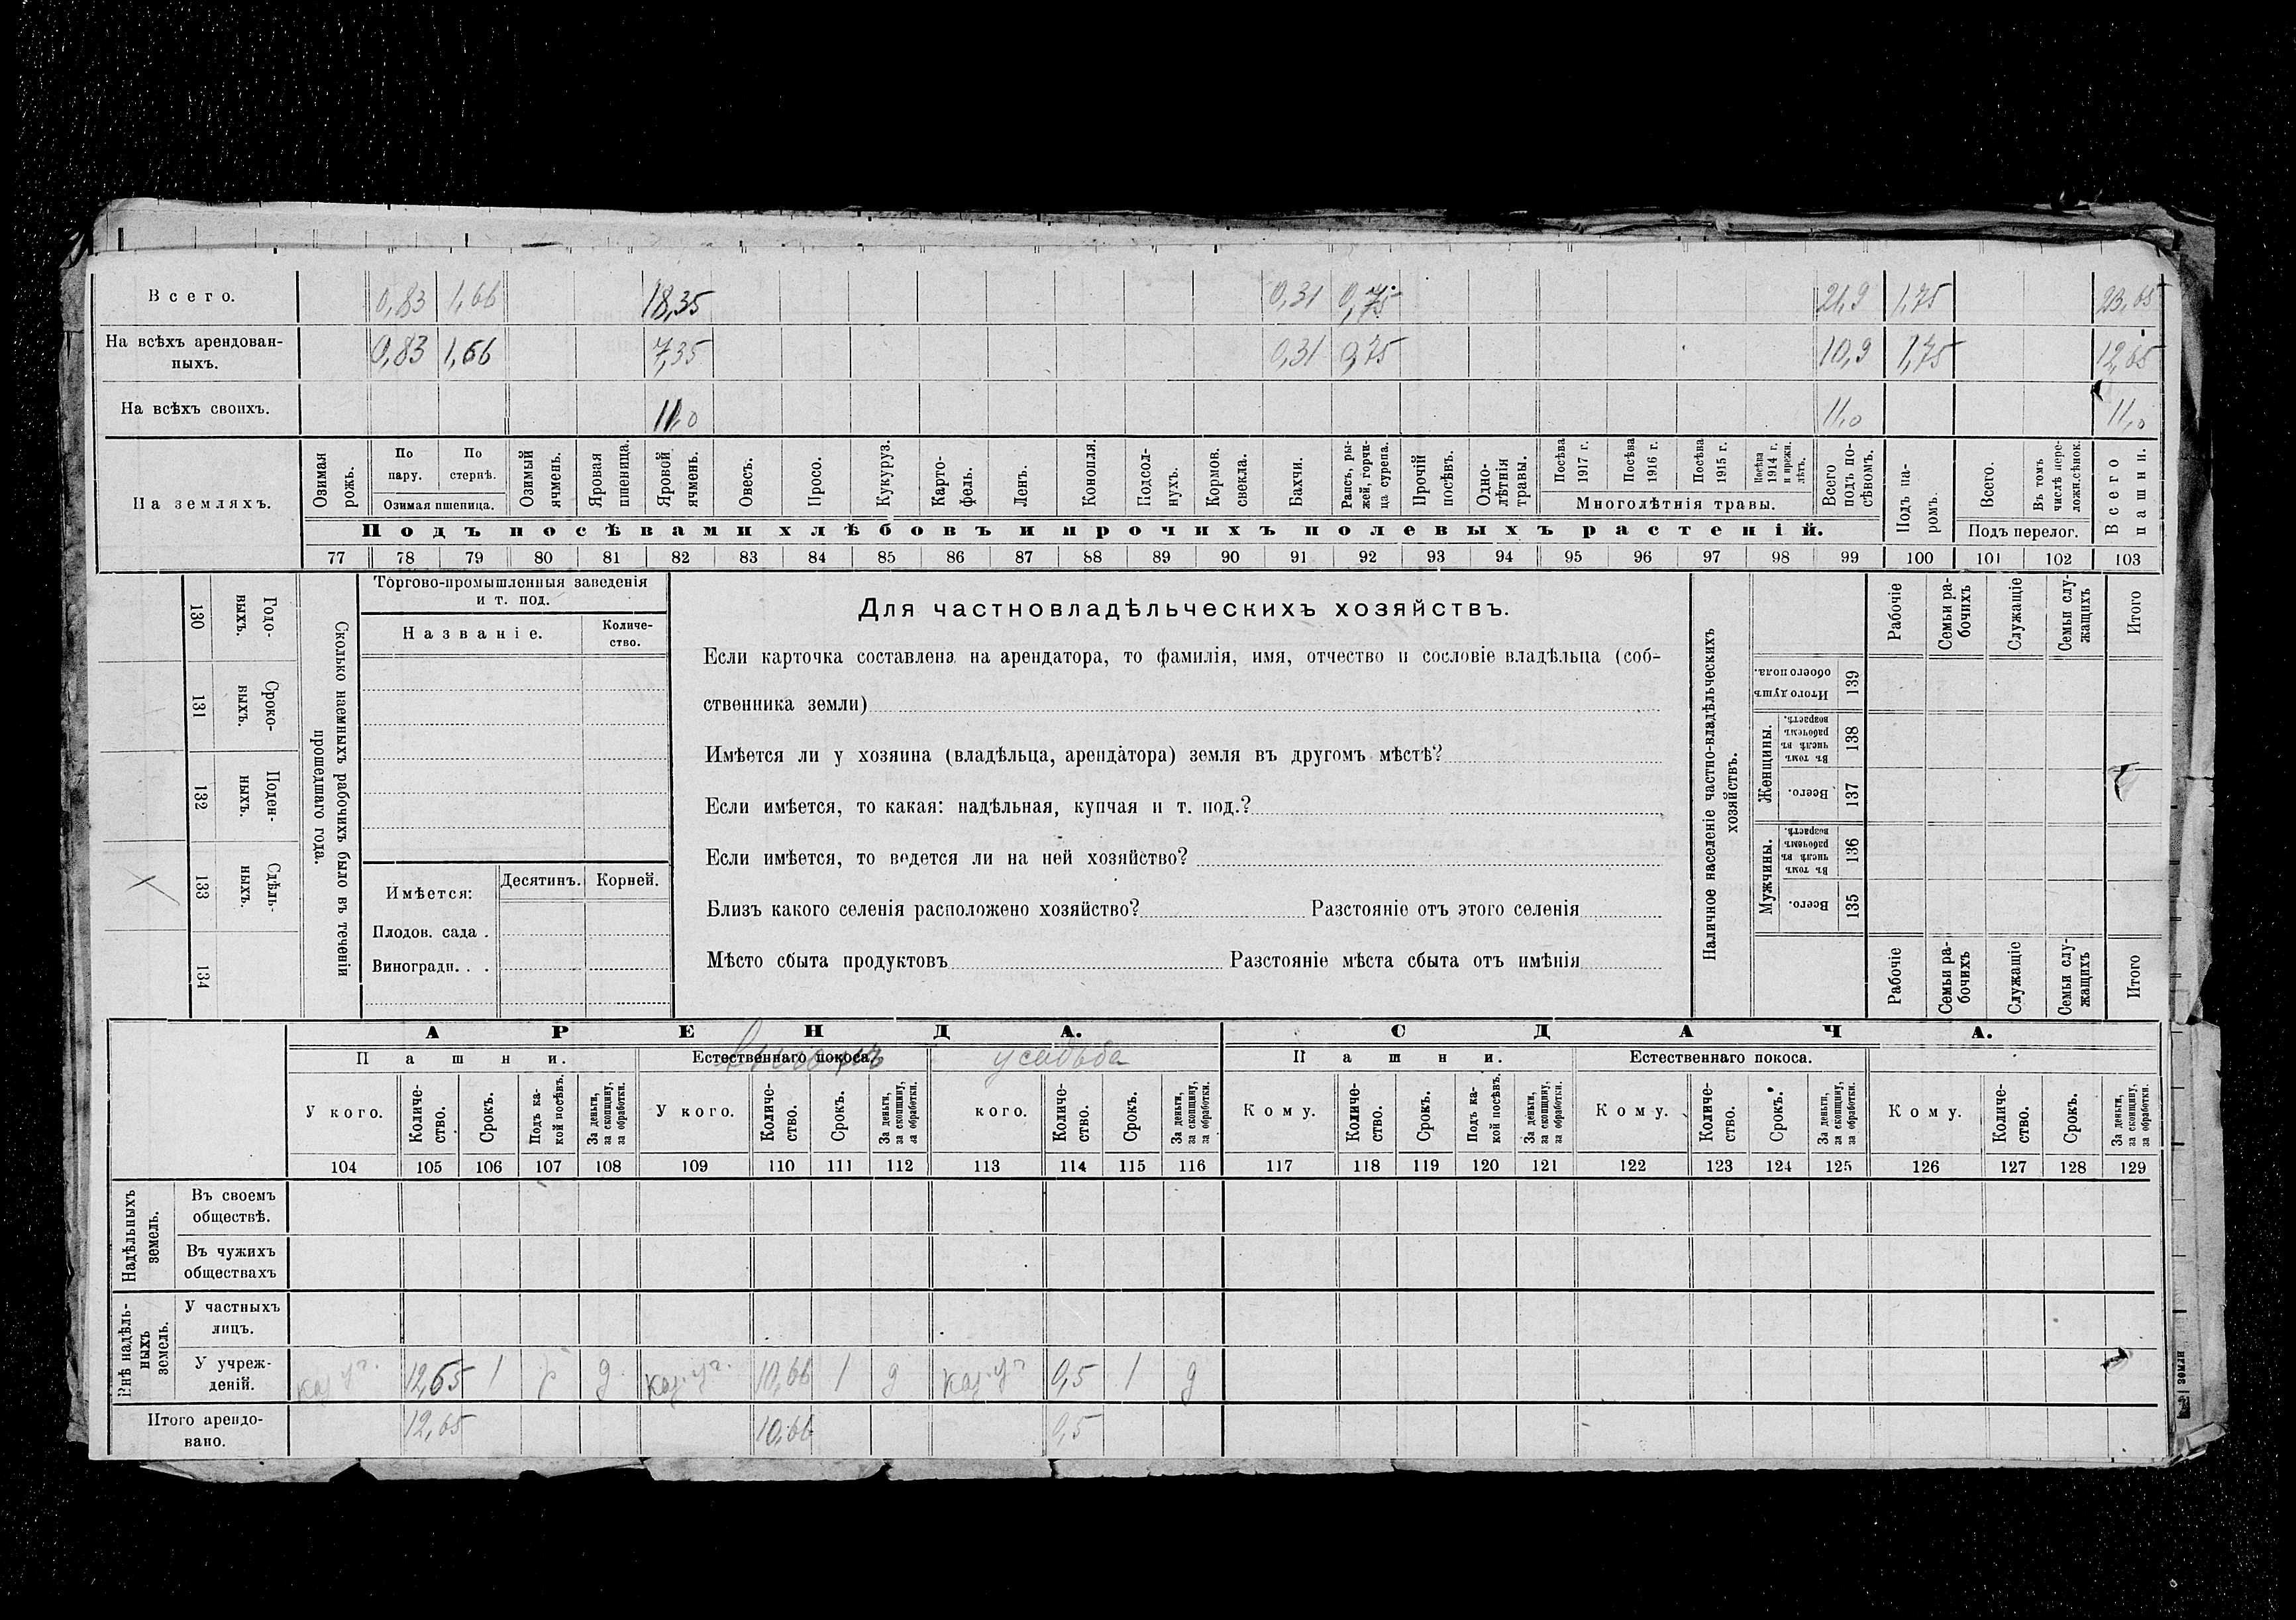 Всего. 0,83 1,66 18,35 0,31 0,75 21,9 1,75 23,65
На всѣхъ арендован-
ныхъ. 0,83 1,66 7,35 0,31 0,75 10,9 1,75 12,65
На всѣхъ своихъ. 11,0 11,0 11,0
На земляхъ.
Озимая рожь.
По пару.
По стернѣ.
Озимая пшеница.
Озимый ячмень.
Яровая пшеница.
Яровой ячмень.
Овесъ.
Просо.
Кукуруз.
Карто-
фель.
Ленъ.
Конопля.
Подсол-
нухъ.
Кормов. свекла.
Бахчи.
Рапсъ, ры-
жей, горчи-
ца сурепа.
Прочій посѣвъ.
Одно-
лѣтнія травы.
Посѣва 1917 г.
Посѣва 1916 г.
Посѣва 1915 г.
Посѣва 1914 г. и прежн. лѣтъ.
Многолѣтнія травы.
Всего подъ по-
сѣвомъ.
Подъ па-
ромъ.
Всего.
Въ томъ числѣ пере-
ложн. сѣнок.
Подъ перелог.
Всего пашни.
Подъ посѣвами хлѣбовъ и прочихъ полевыхъ растеній.
77 78 79 80 81 82 83 84 85 86 87 88 89 90 91 92 93 94 95 96 97 98 99 100 101 102 103
130 Годо-
выхъ.
131 Сроко-
выхъ.
132 Поден-
ныхъ.
133 Сдѣль-
ныхъ.
134
Сколько наемныхъ рабочихъ было въ теченіи
прошедшаго года.
Торгово-промышленныя заведенія
и т. под.
Названіе. Количе-
ство.
Имѣется: Десятинъ. Корней.
Плодов. сада .
Виноградн. . .
Для частновладѣльческихъ хозяйствъ.
Если карточка составлена на арендатора, то фамилія, имя, отчество и сословіе владѣльца (соб-
ственника земли)
Имѣется ли у хозяина (владѣльца, арендатора) земля въ другомъ мѣстѣ?
Если имѣется, то какая: надѣльная, купчая и т. под.?
Если имѣется, то ведется ли на ней хозяйство?
Близъ какого селенія расположено хозяйство? Разстояніе отъ этого селенія
Мѣсто сбыта продуктовъ Разстояніе мѣста сбыта отъ имѣнія
Наличное населеніе частно-владѣльческихъ
хозяйствъ.
Рабочіе
Семьи ра-
бочихъ
Служащіе
Семьи слу-
жащихъ
Итого
Итого душъ обоего пола. 139
Женщины.
Въ томъ числѣ въ рабочемъ возрастѣ. 138
Всего. 137
Мужчины.
Въ томъ числѣ въ рабочемъ возрастѣ. 136
Всего. 135
Рабочіе
Семьи ра-
бочихъ
Служащіе
Семьи слу-
жащихъ
Итого
АРЕНДА. СДАЧА.
Пашни. Естественнаго покоса. усадьба Пашни. Естественнаго покоса.
У кого. Количе-
ство. Срокъ. Подъ ка-
кой посѣвъ. За деньги, за скопщину, за обработки.
У кого. Количе-
ство. Срокъ. За деньги, за скопщину, за обработки.
кого. Количе-
ство. Срокъ. За деньги, за скопщину, за обработки.
Кому. Количе-
ство. Срокъ. Подъ ка-
кой посѣвъ. За деньги, за скопщину, за обработки.
Кому. Количе-
ство. Срокъ. За деньги, за скопщину, за обработки.
Кому. Количе-
ство. Срокъ. За деньги, за скопщину, за обработки.
104 105 106 107 108 109 110 111 112 113 114 115 116 117 118 119 120 121 122 123 124 125 126 127 128 129
Надѣльныхъ
земель.
Въ своемъ
обществѣ.
Въ чужихъ
обществахъ
Внѣ надѣль-
ныхъ
земель.
У частныхъ
лицъ.
У учреж-
деній. 12,65 1 д 10,66 1 д 0,5 1 д
Итого арендо-
вано. 12,65 10,66 0,5
земли